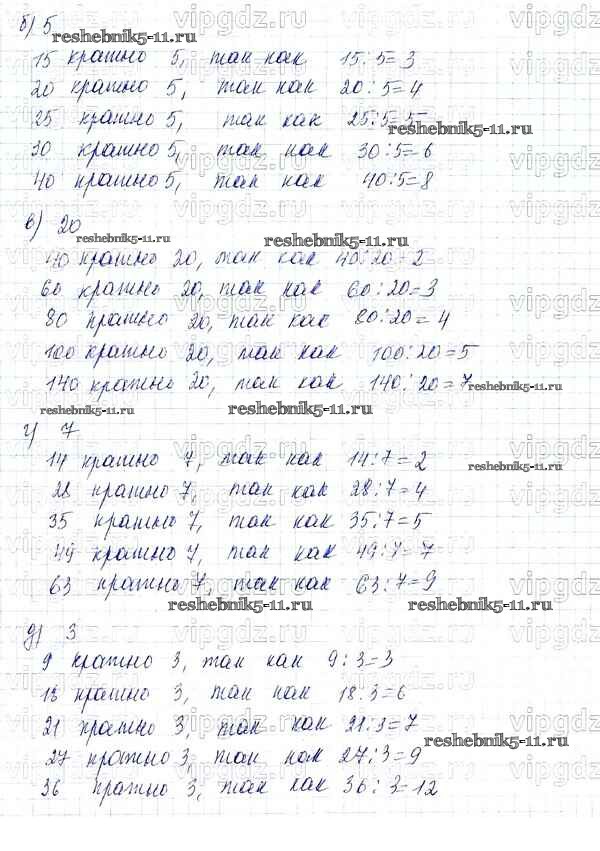 б) 5
15 кратно 5, так как 15:5=3
20 кратно 5, так как 20:5=4
25 кратно 5, так как 25:5=5
30 кратно 5, так как 30:5=6
40 кратно 5, так как 40:5=8
в) 20
40 кратно 20, так как 40:20=2
60 кратно 20, так как 60:20=3
80 кратно 20, так как 80:20=4
100 кратно 20, так как 100:20=5
140 кратно 20, так как 140:20=7
г) 7
14 кратно 7, так как 14:7=2
28 кратно 7, так как 28:7=4
35 кратно 7, так как 35:7=5
49 кратно 7, так как 49:7=7
63 кратно 7, так как 63:7=9
д) 3
9 кратно 3, так как 9:3=3
18 кратно 3, так как 18:3=6
21 кратно 3, так как 21:3=7
27 кратно 3, так как 27:3=9
36 кратно 3, так как 36:3=12
reshebnik5-11.ru
vipgdz.ru